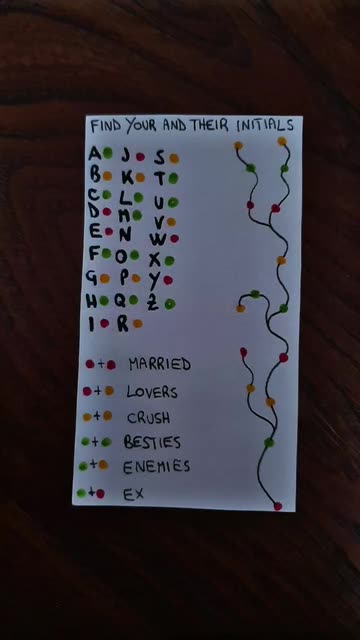 FIND YOUR AND THEIR INITIALS
A J S
B K T
C L U
D M V
E N W
F O X
G P Y
H Q Z
I R
+ MARRIED
+ LOVERS
+ CRUSH
+ BESTIES
+ ENEMIES
+ EX